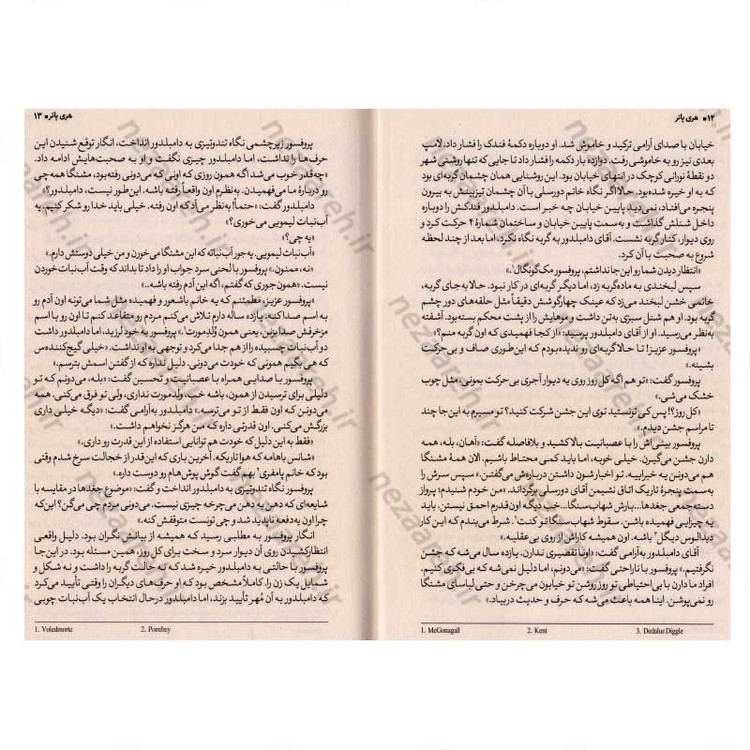 ۱۲ ● هری پاتر
خیابان با صدای آرامی ترکید و خاموش شد. او دوباره دکمهٔ فندک را فشار داد. لامپ
بعدی نیز رو به خاموشی رفت. دوازده بار دکمه را فشار داد تا جایی که تنها روشنی شهر
دو نقطهٔ نورانی کوچک در انتهای خیابان بود. این روشنایی همان چشمان گربه‌ای بود
که به او خیره شده‌بود. حالا اگر نگاه خانم دورسلی با آن چشمان تیزبینش به بیرون
پنجره می‌افتاد، نمی‌دید پایین خیابان چه خبر است. دامبلدور فندکش را دوباره
داخل شنلش گذاشت و به‌سمت پایین خیابان و ساختمان شمارهٔ ۴ حرکت کرد و
روی دیوار، کنار گربه نشست. آقای دامبلدور به گربه نگاه نکرد؛ اما بعد از چند لحظه
شروع به صحبت با آن کرد.
«انتظار دیدن شما رو این‌جا نداشتم، پروفسور مک‌گونگال¹.»
سپس لبخندی به ماده‌گربه زد، اما دیگر گربه‌ای در کار نبود. حالا به‌جای گربه،
خانمی خشن لبخندی می‌زد که عینک چهارگوشش دقیقاً مثل حلقه‌های دور چشم
گربه بود. او هم شنل سبزی به‌تن داشت و موهایش را از پشت محکم بسته‌بود. آشفته
به‌نظر می‌رسید. او از آقای دامبلدور پرسید: «از کجا فهمیدی که اون گربه منم؟»
«پروفسور عزیز! تا حالا گربه‌ای رو ندیده‌بودم که این‌طوری صاف و بی‌حرکت
بشینه.»
پروفسور گفت: «تو هم اگه کل روز روی یه دیوار آجری بی‌حرکت بمونی، مثل چوب
خشک می‌شی.»
«کل روز؟! پس کی تونستید توی این جشن شرکت کنید؟ تو مسیرم به این‌جا چند
تا مراسم جشن دیدم.»
پروفسور بینی‌اش را با عصبانیت بالا کشید و بلافاصله گفت: «آهان، بله، همه
دارن جشن می‌گیرن. خیلی خوبه، اما باید کمی محتاط باشیم. الان همهٔ مشنگا
هم می‌دونن یه خبراییه. تو اخبارشون داشتن درباره‌ش می‌گفتن.» سپس سرش را
به‌سمت پنجرهٔ تاریک اتاق نشیمن آقای دورسلی برگرداند. «من خودم شنیدم؛ پرواز
دسته‌جمعی جغدها... بارش شهاب‌سنگا... خب دیگه اون‌قدرم احمق نیستن. باید
یه چیزایی فهمیده باشن. سقوط شهاب‌سنگا تو کنت². شرط می‌بندم که این کار
دیدالوس دیگل³ باشه. اون همیشه کاراش از روی بی‌عقلیه.»
آقای دامبلدور به‌آرامی گفت: «اونا تقصیری ندارن. یازده سال می‌شه که جشن
نگرفتیم.» پروفسور با ناراحتی گفت: «می‌دونم، اما دلیل نمی‌شه که بی‌فکری کنیم.
افراد ما دارن با بی‌احتیاطی تو روز روشن تو خیابون می‌چرخن و حتی لباسای مشنگا
رو نمی‌پوشن. اینا همه باعث می‌شه که حرف و حدیث دربیاد.»
1. McGonagall 2. Kent 3. Dedalus Diggle
هری پاتر ● ۱۳
پروفسور زیرچشمی نگاه تندوتیزی به دامبلدور انداخت، انگار توقع شنیدن این
حرف‌ها را نداشت، اما دامبلدور چیزی نگفت و او به صحبت‌هایش ادامه داد.
«چه‌قدر خوب می‌شد اگه همون روزی که اونی که می‌دونی رفته‌بود، مشنگا همه‌چی
رو دربارهٔ ما می‌فهمیدن. به‌نظرم اون واقعاً رفته باشه. این‌طور نیست، دامبلدور؟»
دامبلدور گفت: «حتماً! به‌نظر می‌آد که اون رفته. خیلی باید خدا رو شکر کنیم. یه
آب‌نبات لیمویی می‌خوری؟»
«یه چی؟»
«آب‌نبات لیمویی. یه جور آب‌نباته که این مشنگا می‌خورن و من خیلی دوستش دارم.»
«نه، ممنون.» پروفسور با لحنی سرد جواب او را داد تا بداند که وقت آب‌نبات خوردن
نیست. «همون‌جوری که گفتم، اگه این آدم رفته باشه...»
«پروفسور عزیز، مطمئنم که یه خانم باشعور و فهمیده مثل شما می‌تونه اون آدم رو
به اسم صدا کنه. یازده ساله دارم تلاش می‌کنم مردم رو متقاعد کنم تا اون رو با اسم
مزخرفش صدا بزنن، یعنی همون وُلدمورت¹.» پروفسور به خود لرزید، اما دامبلدور داشت
دو آب‌نبات چسبیده را از هم جدا می‌کرد و توجهی به او نداشت. «خیلی گیج‌کننده‌س
که هی بگیم همونی که خودت می‌دونی. دلیل نداره که از گفتن اسمش بترسم.»
پروفسور با صدایی همراه با عصبانیت و تحسین گفت: «بله، می‌دونم که تو
دلیلی برای ترسیدن از همون، باشه خب، ولدمورت نداری، ولی تو فرق می‌کنی. همه
می‌دونن که اون فقط از تو می‌ترسه.» دامبلدور به‌آرامی گفت: «دیگه خیلی داری
بزرگش می‌کنی. اون قدرتی داره که من هرگز نخواهم داشت.»
«فقط به این دلیل که خودت هم توانایی استفاده از این قدرت رو داری.»
«شانس باهامه که هوا تاریکه. آخرین باری که این‌قدر از خجالت سرخ شدم وقتی
بود که خانم پامفری² بهم گفت گوش پوش‌هام رو دوست داره.»
پروفسور نگاه تندوتیزی به دامبلدور انداخت و گفت: «موضوع جغدها در مقایسه با
شایعه‌ای که دهن به دهن می‌چرخه چیزی نیست. می‌دونی مردم چی می‌گن؟ این که
چرا اون یه‌دفعه ناپدید شد و چی تونست متوقفش کنه.»
انگار پروفسور به مطلبی رسید که همیشه از بیانش نگران بود. دلیل واقعی
انتظارکشیدن روی آن دیوار سرد و سخت برای کل روز، همین مسئله بود. در این‌جا
پروفسور با حالتی به دامبلدور خیره شد که نه حالت گربه را داشت و نه شکل و
شمایل یک زن را. کاملاً مشخص بود که او حرف‌های دیگران را وقتی تأیید می‌کرد
که دامبلدور به آن مُهر تأیید بزند، اما دامبلدور درحال انتخاب یک آب‌نبات چوبی
1. Voledmorte 2. Pomfrey
nezaareh.ir